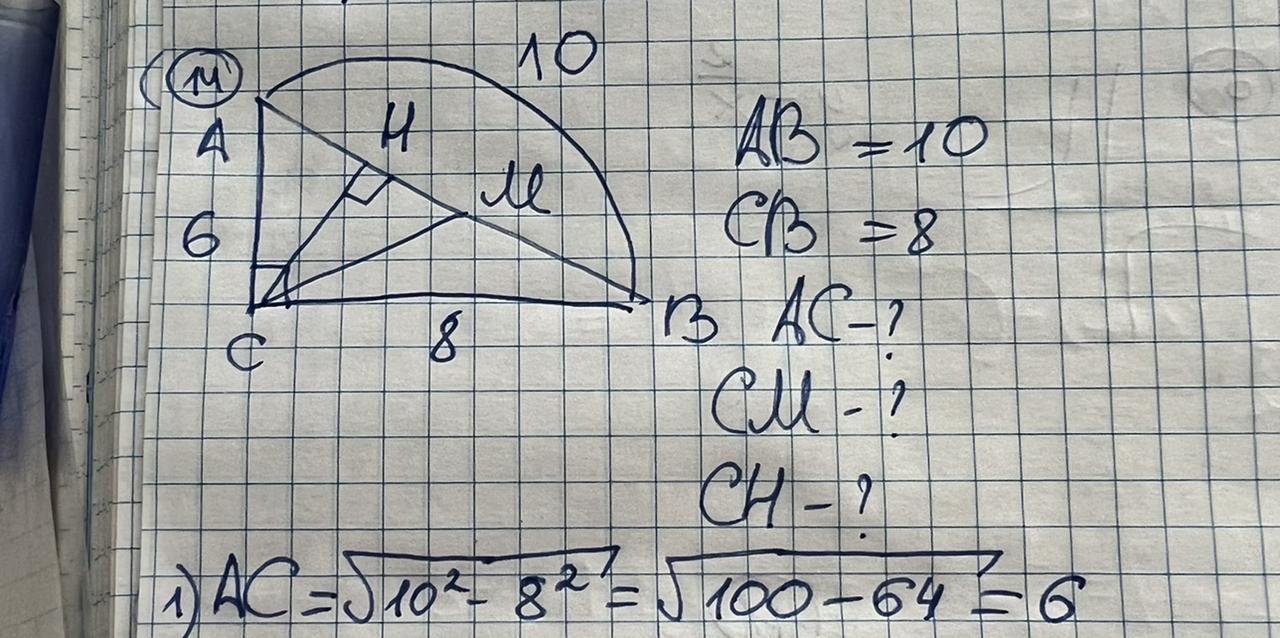 14
10
A
H
M
6
C
8
B
AB = 10
CB = 8
AC - ?
CM - ?
CH - ?
1) AC = √10² - 8² = √100 - 64 = 6